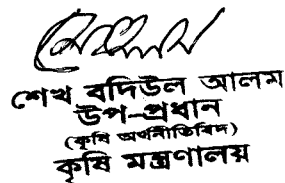 শেখ বদিউল আলম
উপ-প্রধান
(কৃষি অর্থনীতিবিদ)
কৃষি মন্ত্রণালয়